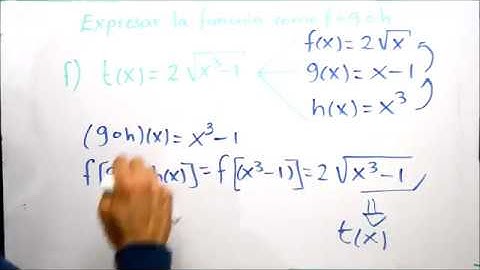 Expresar la función como f∘g∘h
f) t(x) = 2√(x³-1)
f(x) = 2√x
g(x) = x - 1
h(x) = x³
(g∘h)(x) = x³ - 1
f[ h(x)] = f[(x³-1)] = 2√(x³-1)
t(x)